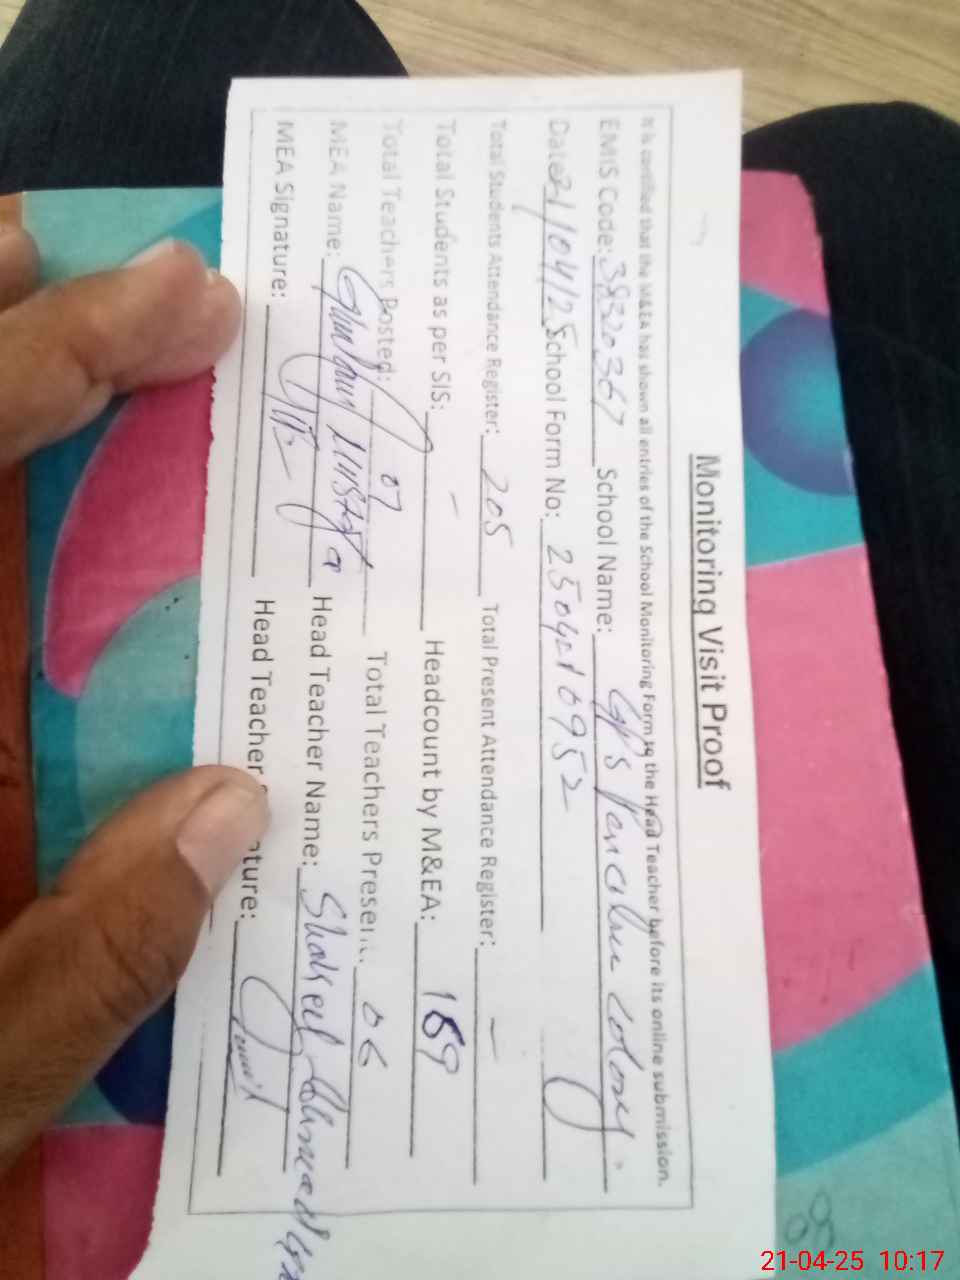 Monitoring Visit Proof
It is certified that the M&EA has shown all entries of the School Monitoring Form to the Head Teacher before its online submission.
EMIS Code: 38320367 School Name: GPS Colony
Date: 21/04/25 School Form No: 250421 0952
Total Students Attendance Register: 205 Total Present Attendance Register: –
Total Students as per SIS: – Headcount by M&EA: 189
Total Teachers Posted: 07 Total Teachers Present: 06
MEA Name: Mustafa Head Teacher Name: Shakeel Ahmed
MEA Signature: Head Teacher
21-04-25 10:17